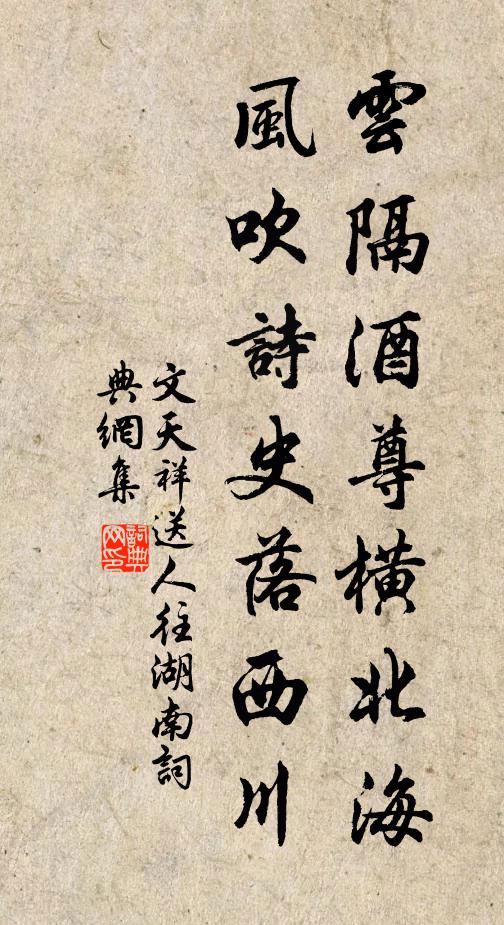 雲隔酒尊橫北海
風吹詩史落西川
文天祥送人往湖南詞
典網集
詞典網印